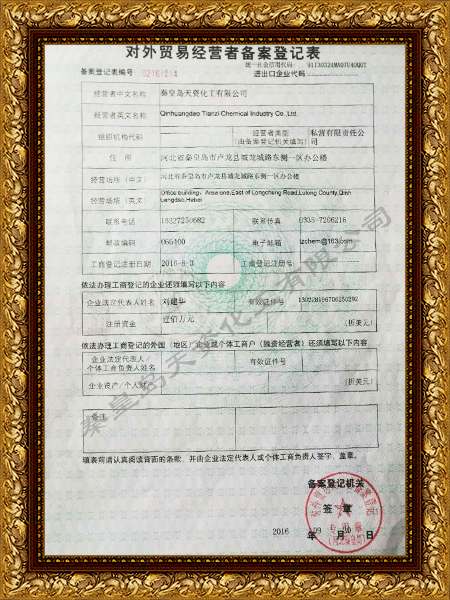 对外贸易经营者备案登记表
统一社会信用代码: 91130324MA07U40Q0T
备案登记表编号 02161214 进出口企业代码
经营者中文名称 秦皇岛天资化工有限公司
经营者英文名称 Qinhuangdao Tianzi Chemical Industry Co.,Ltd.
组织机构代码 经营者类型 私营有限责任公
(由备案登记机关填写) 司
住 所 河北省秦皇岛市卢龙县城龙城路东侧一区办公楼
经营场所（中文） 河北省秦皇岛市卢龙县城龙城路东侧一区办公楼
经营场所（英文） Office building, Area one,East of Longcheng Road,Lulong County,Qinh
uangdao,Hebei
联系电话 15227250682 联系传真 0335-7206216
邮政编码 066400 电子邮箱 tzchem@163.com
工商登记注册日期 2016-8-3 工商登记注册号
依法办理工商登记的企业还须填写以下内容
企业法定代表人姓名 刘建华 有效证件号 130228196706250292
注册资金 壹佰万元 (折美元)
依法办理工商登记的外国（地区）企业或个体工商户（独资经营者）还须填写以下内容
企业法定代表人/
个体工商负责人姓名 有效证件号
企业资产/个人财产 (折美元)
备注
填表前请认真阅读背面的条款，并由企业法定代表人或个体工商负责人签字、盖章。
备案登记机关
签 章
2016 年 09 月 10 日
秦皇岛天资化工有限公司